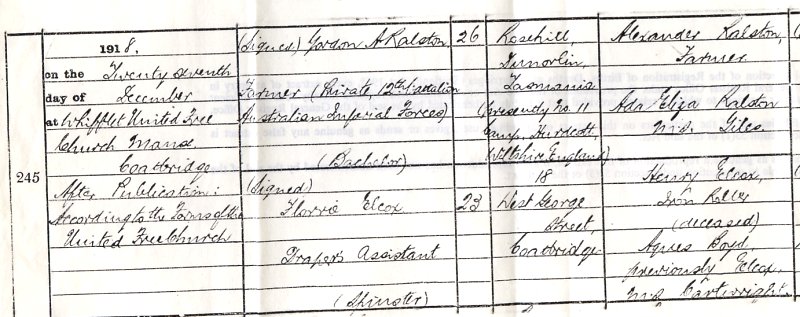 245
1918.
on the Twenty seventh
day of December
at Whifflet United Free
Church Manse,
Coatbridge
After Publication:
According to the Forms of the
United Free Church
(Signed) Gordon A Ralston
Farmer (Private 12th Battalion
Australian Imperial Forces)
(Bachelor)
(Signed)
Florrie Elcox
Draper's Assistant
(Spinster)
26
23
Rosehill
Tasmania
(Presently No. 11
Camp, Hurdcott,
Wiltshire, England)
18
West George
Street,
Coatbridge
Alexander Ralston,
Farmer
Ada Eliza Ralston
M.S. Giles.
Henry Elcox,
Iron Roller
(deceased)
Agnes Boyd,
previously Elcox,
M.S. Cartwright.